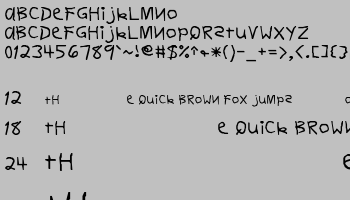 aBCDeFGHijkLMNO
aBCDeFGHijkLMNOpQRStuVWXYZ
0123456789`~!@#$%^&*()-_+=>,<.[]{}
12 tH e QuiCk BROWN FOX juMpS
18 tH e QuiCk BROWN
24 tH e